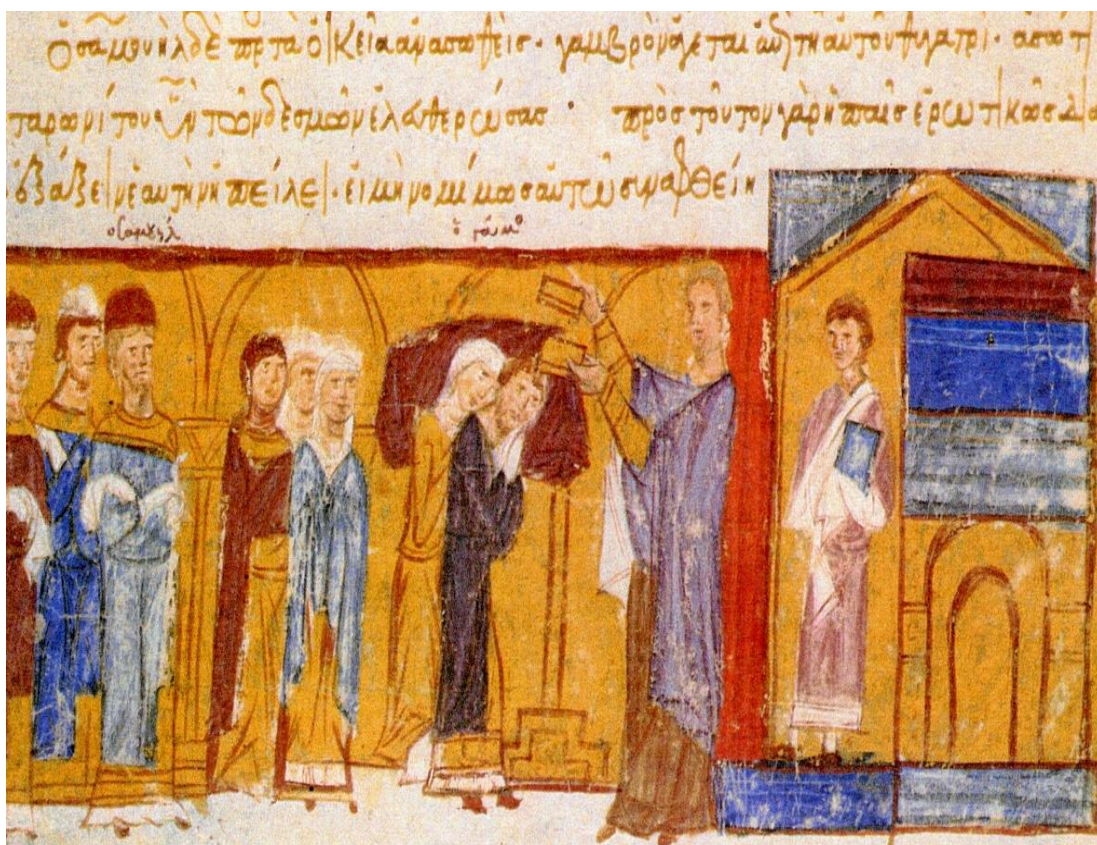 Ὁ σαμουὴλ δὲ τὰ οἰκεῖα ἀνασωθεὶς· γαμβρὸν ἄγεται τῇ αὐτοῦ θυγατρί· ἀσωτ
ταρωνίτου υἱὸν τῶν δεσμῶν ἐλευθερώσας· πρὸς τοῦτον γὰρ ἡ παῖς ἐρωτικῶς δια
ἑαυτὴν ἠπείλει· εἰ μὴ νομίμως αὐτῷ συναφθείη
ὁ σαμουήλ
ὁ γάμο